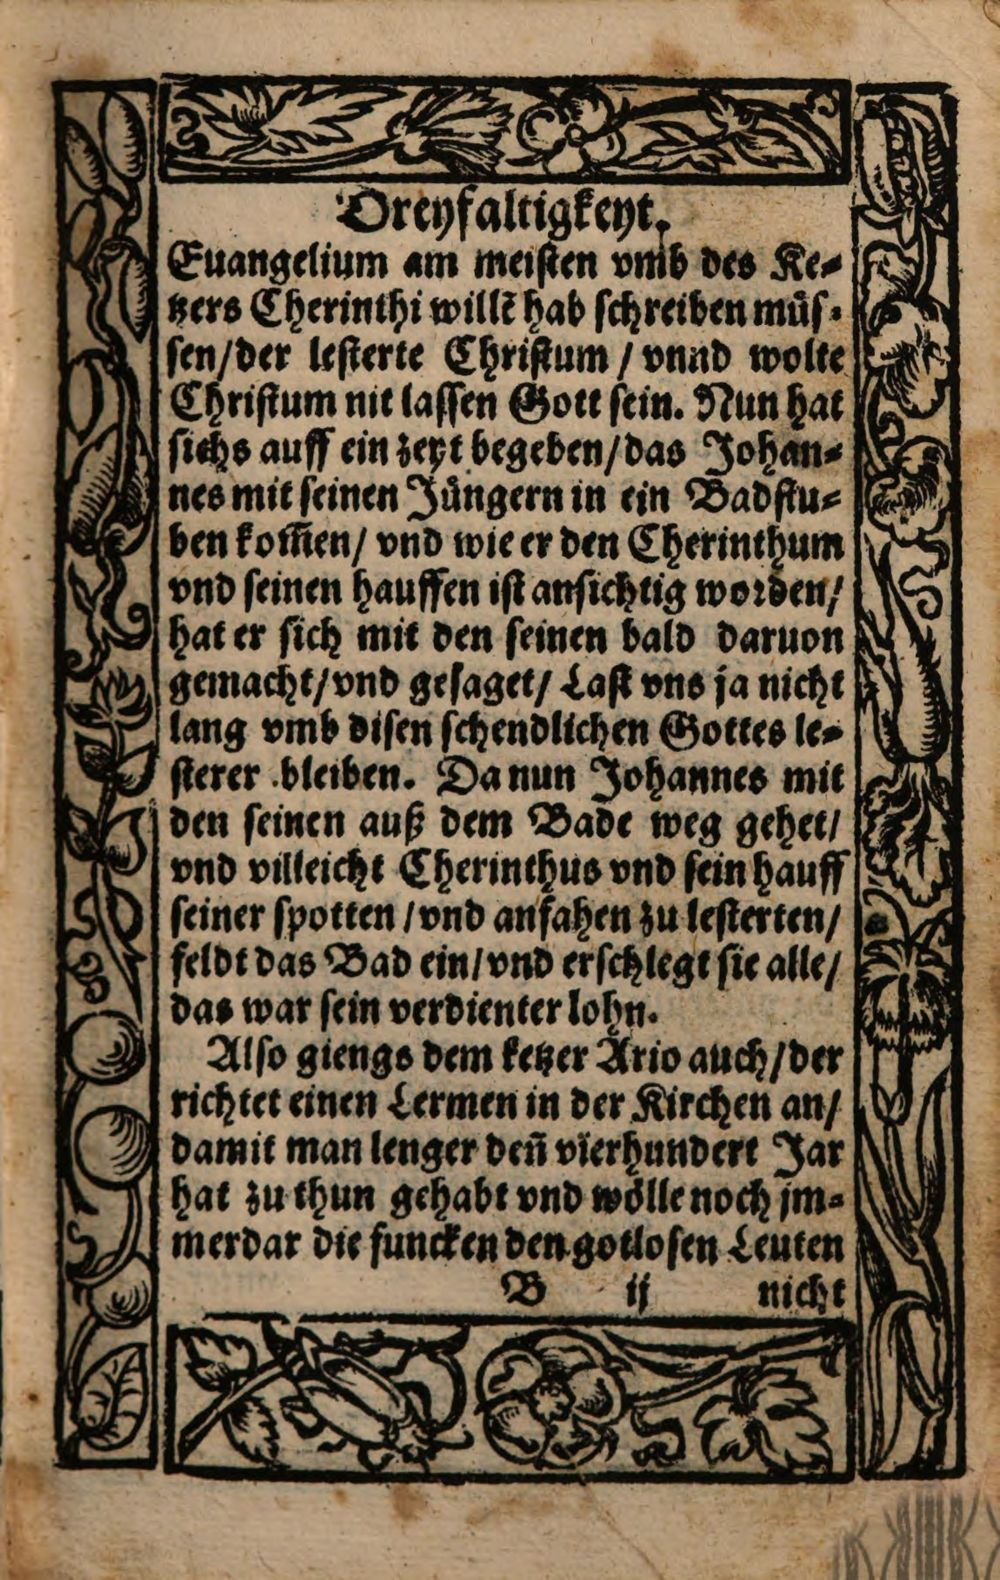 Dreyfaltigkeyt.
Euangelium am meisten vmb des Ke⸗
tzers Cherinthi willē hab schreiben muͤs⸗
sen/der lesterte Christum / vnnd wolte
Christum nit lassen Gott sein. Nun hat
sichs auff ein zeyt begeben/das Johan⸗
nes mit seinen Juͤngern in ein Badstu⸗
ben kom̄en/ vnd wie er den Cherinthum
vnd seinen hauffen ist ansichtig worden/
hat er sich mit den seinen bald daruon
gemacht/vnd gesaget/ Last vns ja nicht
lang vmb disen schendlichen Gottes le⸗
sterer bleiben. Da nun Johannes mit
den seinen auß dem Bade weg gehet/
vnd villeicht Cherinthus vnd sein hauff
seiner spotten /vnd anfahen zu lesterten/
feldt das Bad ein/vnd erschlegt sie alle/
das war sein verdienter lohn.
Also giengs dem ketzer Ario auch/der
richtet einen Lermen in der Kirchen an/
damit man lenger den̄ vierhundert Jar
hat zu thun gehabt vnd woͤlle noch jm⸗
merdar die funcken den gotlosen Leuten
B ij nicht